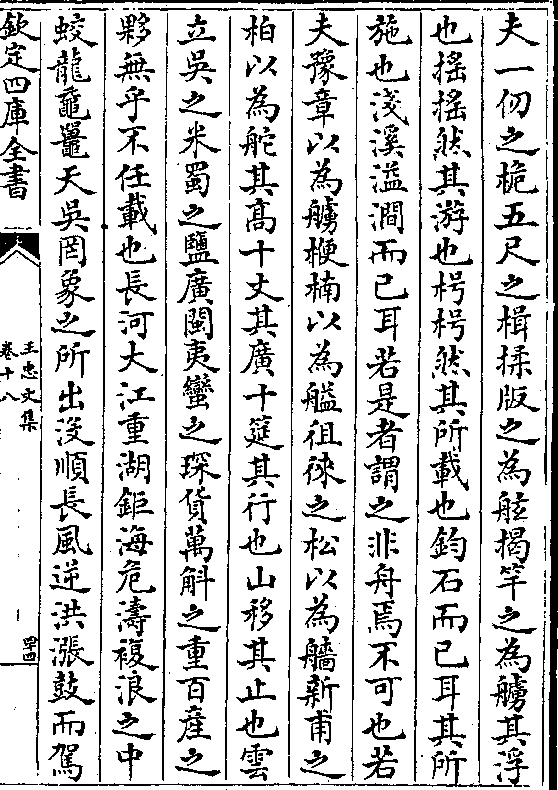 夫一仞之桅五尺之楫揉版之為舷揭竿之為艣其浮
也搖搖然其游也枵枵然其所載也鈞石而已耳其所
施也淺溪溢澗而已耳若是者謂之非舟焉不可也若
夫豫章以為艣楩楠以為艗徂徠之松以為艢新甫之
柏以為舵其髙十丈其廣十筵其行也山移其止也雲
立吳之米蜀之鹽廣閩夷蠻之琛貨萬斛之重百廛之
夥無乎不任載也長河大江重湖鉅海危濤複浪之中
蛟龍黿鼉天吳罔象之所出沒順長風逆洪漲鼓而駕
欽定四庫全書
王忠文集
卷十八
四十四